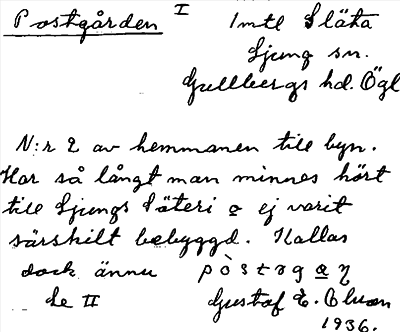 Postgården I Imtl Släta
Ljung sn.
Gullbergs hd. Ögl
N:r 2 av hemmanen till byn.
Har så långt man minnes hört
till Ljungs Säteri o ej varit
särskilt bebyggd. Kallas
dock ännu pòstgan
Se II Gustaf E. Olson
1936.